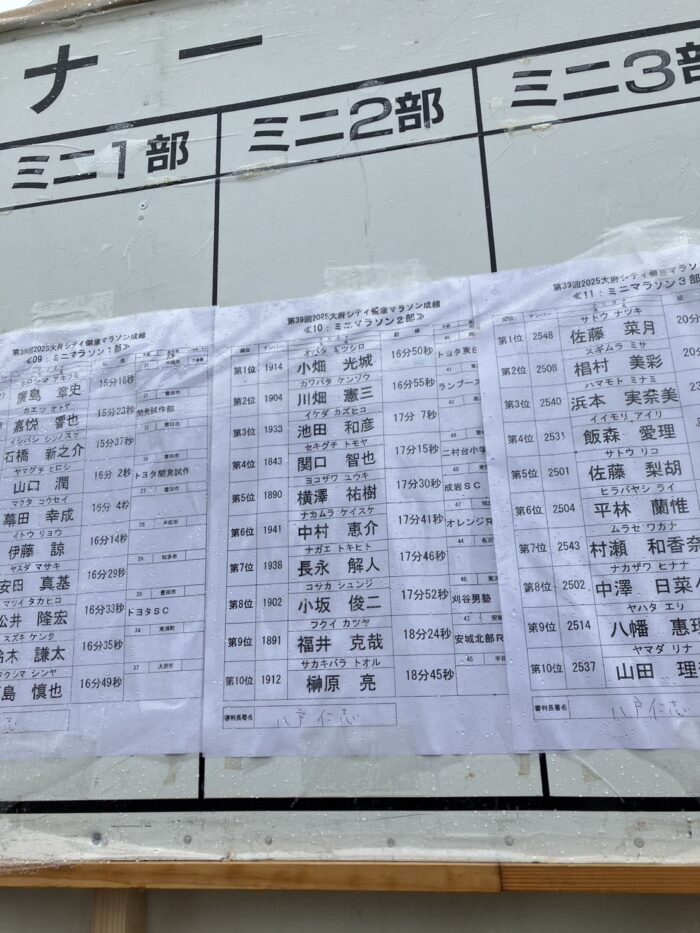 ナー
ミニ1部
ミニ2部
ミニ3部
第39回2025大府シティ健康マラソン成績
≪09：ミニマラソン1部≫
章史 15分16秒
カエツ オトヤ
嘉悦 響也 15分23秒 開発試作部
イシバシ シンノスケ
石橋 新之介 15分37秒
ヤマグチ ヒロシ
山口 潤 16分 2秒 トヨタ開発試作
マクタ コウセイ
幕田 幸成 16分 4秒
イトウ リョウ
伊藤 諒 16分14秒
ヤスダ マサキ
安田 真基 16分29秒
マツイ タカヒロ
松井 隆宏 16分33秒 トヨタSC
スズキ ケンタ
鈴木 謙太 16分35秒
シンヤ
島 慎也 16分49秒
第39回2025大府シティ健康マラソン成績
≪10：ミニマラソン2部≫
オバタ ミツシロ
第1位 1914 小畑 光城 16分50秒 トヨタ東日
カワバタ ケンゾウ
第2位 1904 川畑 憲三 16分55秒 ランブース
イケダ カズヒコ
第3位 1933 池田 和彦 17分 7秒
セキグチ トモヤ
第4位 1843 関口 智也 17分15秒 二村台小学
ヨコザワ ユウキ
第5位 1890 横澤 祐樹 17分30秒 成岩SC
ナカムラ ケイスケ
第6位 1941 中村 恵介 17分41秒 オレンジR
ナガエ トキヒト
第7位 1938 長永 解人 17分46秒
コサカ シュンジ
第8位 1902 小坂 俊二 17分52秒 刈谷男塾
フクイ カツヤ
第9位 1891 福井 克哉 18分24秒 安城北部R
サカキバラ トオル
第10位 1912 榊原 亮 18分45秒
審判長署名 八戸仁志
第39回2025大府シティ健康マラソン
≪11：ミニマラソン3部
サトウ ナツキ
第1位 2548 佐藤 菜月 20分
スギムラ ミサ
第2位 2508 椙村 美彩
ハマモト ミナミ
第3位 2540 浜本 実奈美
イイモリ アイリ
第4位 2531 飯森 愛理
サトウ リコ
第5位 2501 佐藤 梨胡
ヒラバヤシ ライ
第6位 2504 平林 蘭惟
ムラセ ワカナ
第7位 2543 村瀬 和香奈
ナカザワ ヒナナ
第8位 2502 中澤 日菜
ヤハタ エリ
第9位 2514 八幡 惠理
ヤマダ リナ
第10位 2537 山田 理
審判長署名 八戸仁志